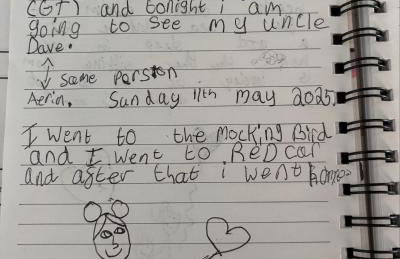 (GF) and tonight i am
going to see my uncle
Dave.
same person
Aerin. Sunday 11th may 2025.
I went to the mocking Bird
and I went to RED car
and after that i went home.